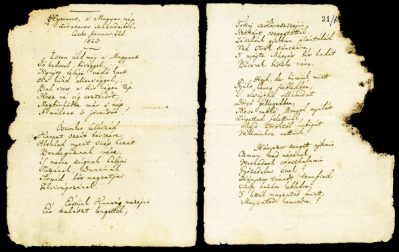 Hymnus, a' Magyar nép
zivataros századaiból.
Cseke, Januar. 22d.
1823
Isten áldd meg a' Magyart
Jó kedvvel, bőséggel,
Nyújts feléje védő kart
Ha küzd ellenséggel;
Bal sors a' kit régen tép,
Hozz rá víg esztendőt,
Megbűnhődte már e' nép
A' multat 's jövendőt.
Őseinket felhozád
Kárpát szent bérczére,
Általad nyert szép hazát
Bendegúznak vére.
'S merre zúgnak habjai
Tiszának, Dunának,
Árpád hős magzatjai
Felvirágozának.
Értünk Kunság mezejin
Ért kalászt lengettél,
Tokaj szőlővesszejin
Nektárt csepegtettél.
Zászlónk gyakran plántálád
Vad török sánczára,
'S nyögte Mátyás bús hadát
Bécsnek büszke vára.
Hajh, de bűneink miatt
Gyúlt harag kebledben,
'S elsújtád villámidat
Dörgő fellegedben,
Most rabló Mongol nyilát
Zúgattad felettünk,
Majd töröktől rabigát
Vállainkra vettünk.
Hányszor zengett ajkain
Ozman vad népének
Vert hadunk csonthalmain
Győzedelmi ének!
Hányszor támadt tenfiad
Szép hazám kebledre,
'S lettél magzatod miatt
Magzatod hamvedre!